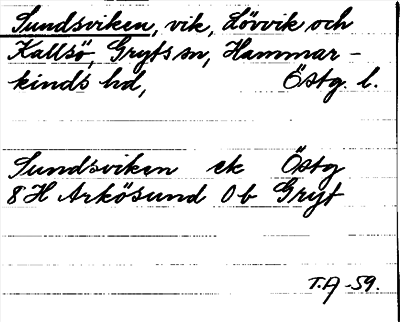 Sundsviken, vik, Lövvik och
Kallsö, Gryts sn, Hammar-
kinds hd, Östg. l.
Sundsviken ek Östg
8 H Arkösund 0 b Gryt
T.A -59.